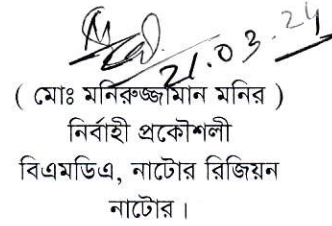 21.03.24
( মোঃ মনিরুজ্জামান মনির )
নির্বাহী প্রকৌশলী
বিএমডিএ, নাটোর রিজিয়ন
নাটোর ।